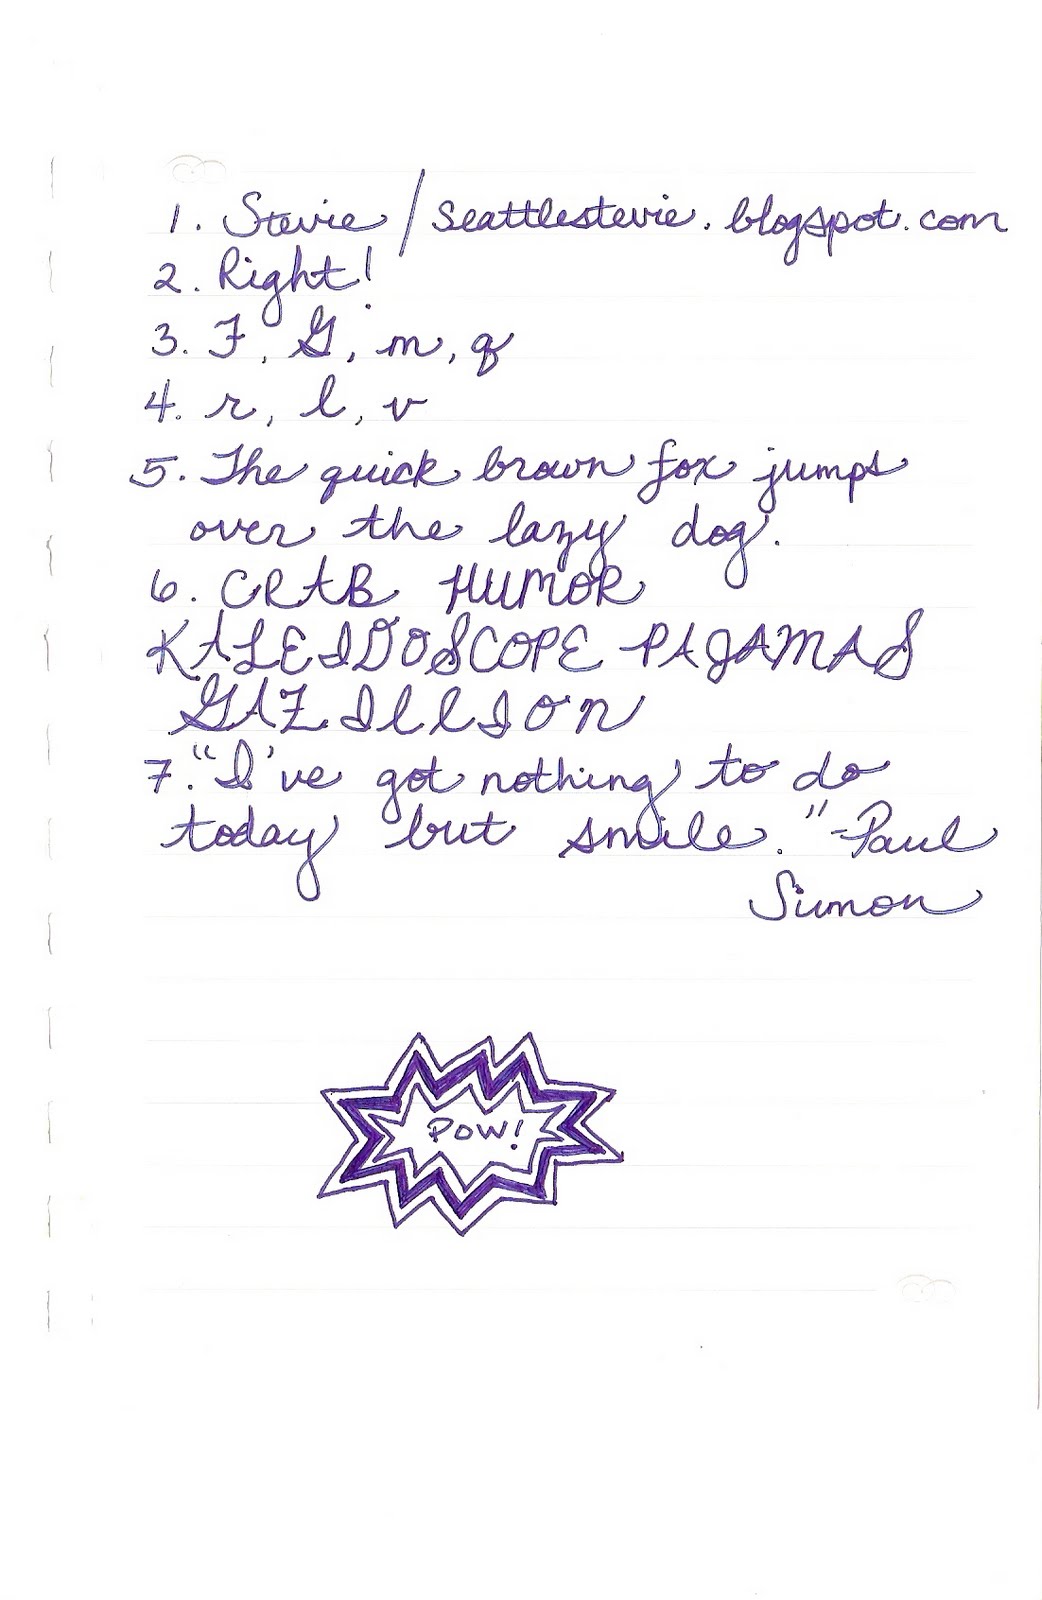 1. Stevie / seattlestevie.blogspot.com
2. Right!
3. F, G, m, q
4. r, l, v
5. The quick brown fox jumps
over the lazy dog.
6. CRAB HUMOR
KALEIDOSCOPE PAJAMAS
GAZILLION
7. "I've got nothing to do
today but smile." -Paul
Simon
POW!